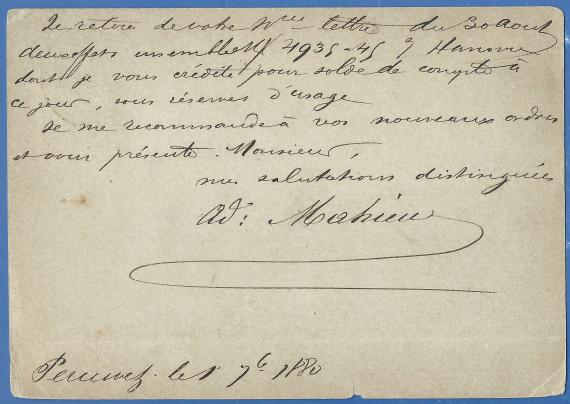 Je retire de votre hre lettre du 30 Aout
deux effets ensemble M 4935-45 s/ Hanovre
dont je vous crédite pour solde de compte à
ce jour, sous réserves d'usage
Je me recommande à vos nouveaux ordres
et vous présente, Monsieur,
mes salutations distinguées
Ad: Mahieu
Peruwez. le 1 7bre 1880